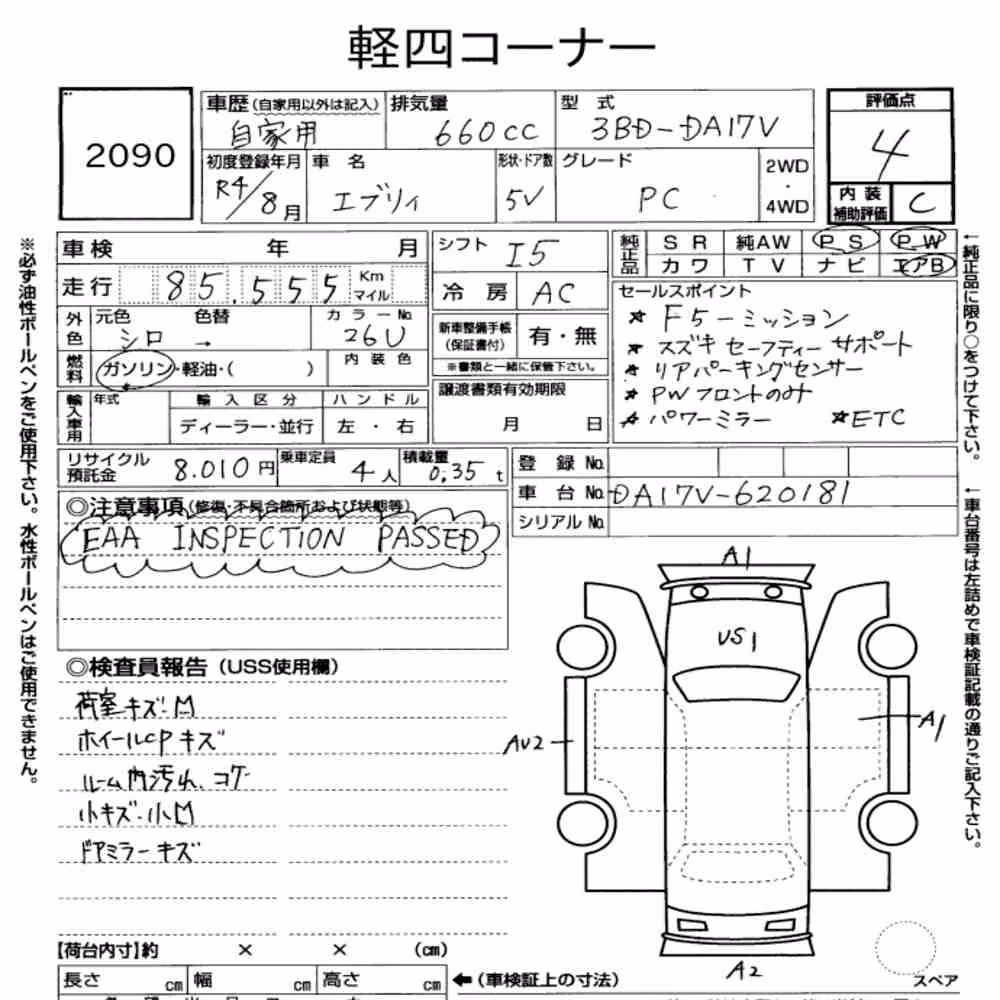 軽四コーナー
2090
車歴(自家用以外は記入)
自家用
排気量
660cc
型 式
3BD-DA17V
評価点
4
初度登録年月
R4/8月
車 名
エブリィ
形状・ドア数
5V
グレード
PC
2WD
・
4WD
内装
補助評価
C
車検 年 月
シフト I5
純正品
SR 純AW PS PW
カワ TV ナビ エアB
走行 85,555 Km
マイル
冷房 AC
セールスポイント
★ F5-ミッション
★ スズキ セーフティー サポート
★ リアパーキングセンサー
★ PWフロントのみ
★ パワーミラー ★ETC
外色
元色 色替 カラーNo.
シロ → 26U
新車整備手帳
(保証書付)
有・無
※書類と一緒に保管下さい。
燃料
ガソリン・軽油・( )
内装色
譲渡書類有効期限
月 日
輸入車用
年式 輸入区分 ハンドル
ディーラー・並行 左・右
リサイクル
預託金
8.010円
乗車定員
4人
積載量
0.35t
登録No.
車台No. DA17V-620181
シリアルNo.
◎注意事項(修復・不具合箇所および状態等)
EAA INSPECTION PASSED
◎検査員報告(USS使用欄)
荷室キズ・凹
ホイールCPキズ
ルーム内汚れ、コゲ
小キズ・小凹
ドアミラーキズ
A1
US1
AU2
A1
A2
スペア
【荷台内寸】約 × × (cm)
長さ cm 幅 cm 高さ cm
←(車検証上の寸法)
※必ず油性ボールペンをご使用下さい。水性ボールペンはご使用できません。
←純正品に限り○をつけて下さい。
←車台番号は左詰めで車検証記載の通りご記入下さい。